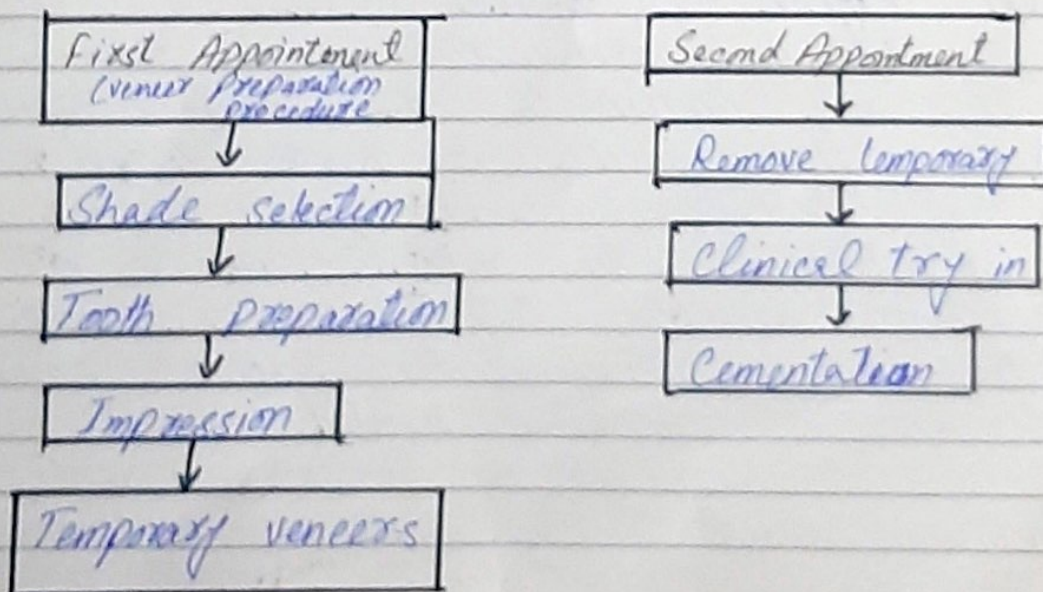 First Appointment
(veneer preparation
procedure
Shade selection
Tooth preparation
Impression
Temporary veneers
Second Appointment
Remove temporary
Clinical try in
Cementation